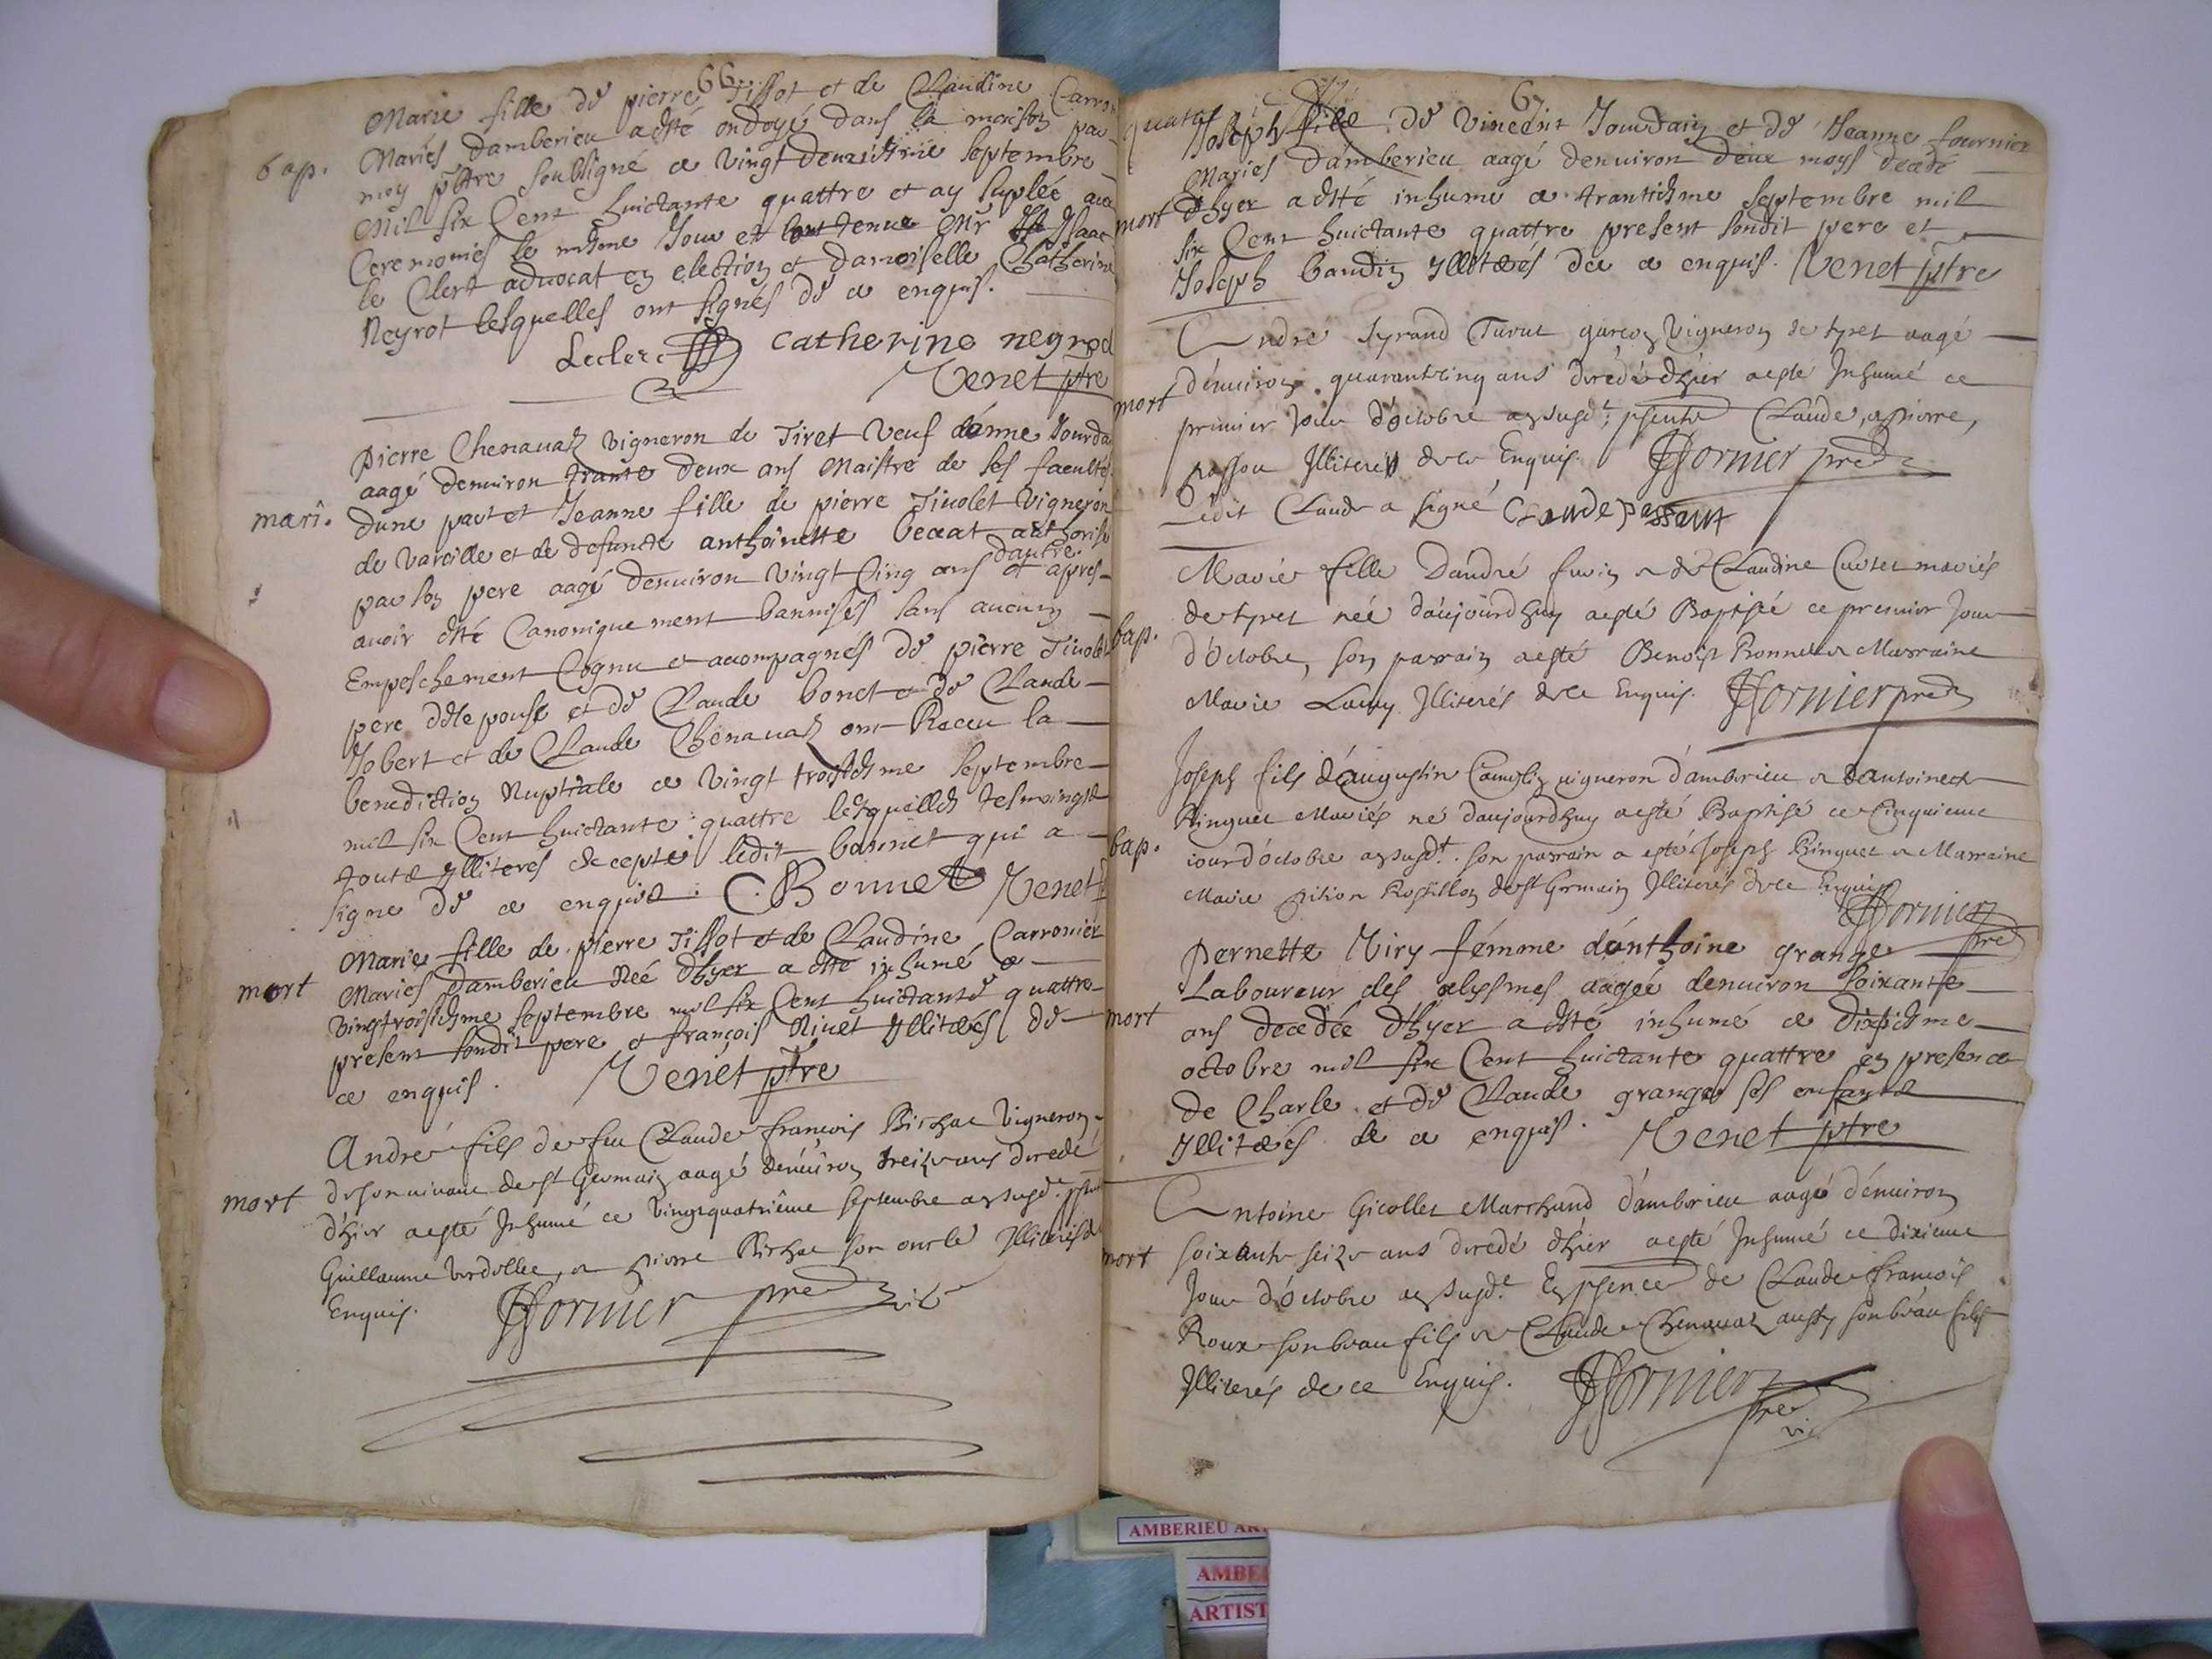 66
Marie fille de pierre Tissot et de Claudine Carron
bap. Mariés damberieu a esté ondoyé dans la maison par
moy pbtre soubsigné ce vingt deuxiesme septembre
mil six Cent huictante quattre et ay suplée aux
Ceremonies le mesme Jour et tenue Mr Isaac
le Clert advocat en election et damoiselle Chatherine
Neyrot lesquelles ont signés de ce enquis.
Leclerc catherine negrod
Venet ptre
pierre Chenavaz vigneron de Tiret veuf danne Jourda
aagé denviron trante deux ans Maistre de ses facultés
mari. dune part et Jeanne fille de pierre Tivolet vigneron
de Vareille et de defuncte anthoinette authorisé
par son pere aagé denviron vingt Cinq ans dautre et apres
avoir esté Canoniquement bannisés sans aucung
Empeschement Cognu et acompagnés de pierre Tivolet
pere de lepouse et de Claude bonet et de Claude
Jobert et de Claude Chenavaz ont Receu la
benediction Nuptiale ce vingt troisiesme septembre
mil six Cent huictante quattre lesquelles tesmoingts
touts Illiteres excepte ledit bonnet qui a
signe de ce enquist. C. Bonnet Venet p
Marie fille de pierre Tissot et de Claudine Carronier
mort Mariés damberieu Née dhyer a esté inhumé ce
vingtroisiesme septembre mil six Cent huictante quattre
present sondit pere et françois Nivet Illiterés de
ce enquis. Venet ptre
André fils de feu Claude francois Vigneron
mort de son vivant de st Germain aagé denviron treize ans decedé
d'hier a esté Inhumé ce vingtquatrième septembre an susd.t
Guillaume et pierre son oncle Illiterés de
Enquis. Fornier pre vic
67
quattre Joseph fils de Vincent Jourdain et de Jeanne fournier
Mariés damberieu aagé denviron deux moys decedé
mort dhyer a esté inhumé ce trantiesme septembre mil
six Cent huictante quattre present sondit pere et
Joseph baudin Illiterés de ce enquis. Venet ptre
André Syrand garçon Vigneron de tyret aagé
mort d'environ quarantcinq ans decedé d'hier a esté Inhumé ce
premier Jour d'octobre an susd.t Claude, et pierre,
passou Illiterés de ce Enquis. Fornier pre
Ledit Claude a signé Claude
Marie fille D'andré et de Claudine Curtet mariés
de tyret née d'aujourdhuy a esté Baptisée ce premier Jour
bap. d'octobre, son parrain a esté Benoist Bonnet et Marraine
Marie Lamy Illiterés de ce Enquis. Fornier pre
Joseph fils d'augustin vigneron d'amberieu et d'antoinette
Ringuet Mariés né d'aujourdhuy a esté Baptisé ce Cinquieme
bap. jour d'octobre an susd.t son parrain a esté Joseph Ringuet et Marraine
Marie Rossillon de st Germain Illiterés de ce Enquis
Fornier pre
Pernette Viry femme d'anthoine grange
Laboureur des abysmes aagée denviron soixante
mort ans decedée d'hyer a esté inhumé ce dixiesme
octobre mil six Cent huictante quattre en presence
de Charle et de Claude grange ses enfants
Illiterés de ce enquis. Venet ptre
Antoine Gicollet Marchand d'amberieu aagé d'environ
mort soixante seize ans decedé d'hier a esté Inhumé ce dixieme
Jour d'octobre an susd.t En psence de Claude francois
Roux son beau fils et Claude Chenavaz aussy son beau fils
Illiterés de ce Enquis. Fornier
pre
vic
AMBERIEU AR
AMBE
ARTIST